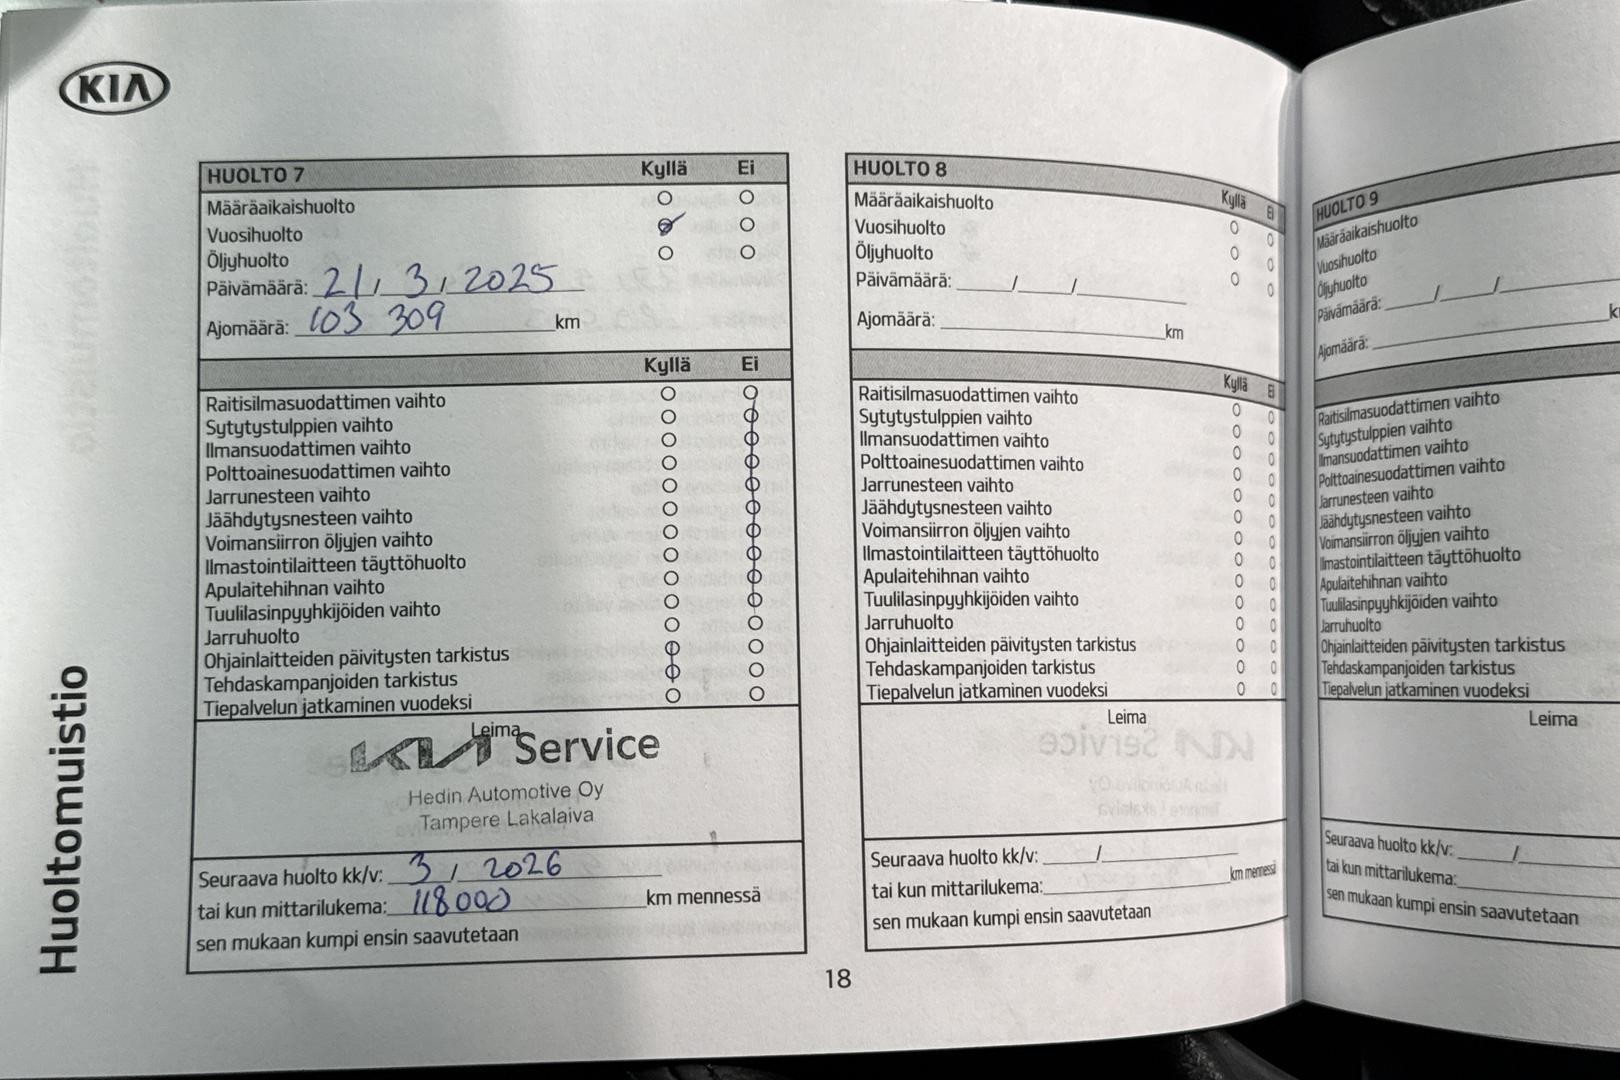 KIA
Huoltomuistio
HUOLTO 7 Kyllä Ei
Määräaikaishuolto
Vuosihuolto
Öljyhuolto
Päivämäärä: 21 / 3 / 2025
Ajomäärä: 103 309 km
Kyllä Ei
Raitisilmasuodattimen vaihto
Sytytystulppien vaihto
Ilmansuodattimen vaihto
Polttoainesuodattimen vaihto
Jarrunesteen vaihto
Jäähdytysnesteen vaihto
Voimansiirron öljyjen vaihto
Ilmastointilaitteen täyttöhuolto
Apulaitehihnan vaihto
Tuulilasinpyyhkijöiden vaihto
Jarruhuolto
Ohjainlaitteiden päivitysten tarkistus
Tehdaskampanjoiden tarkistus
Tiepalvelun jatkaminen vuodeksi
Leima
KIA Service
Hedin Automotive Oy
Tampere Lakalaiva
Seuraava huolto kk/v: 3 / 2026
tai kun mittarilukema: 118000 km mennessä
sen mukaan kumpi ensin saavutetaan
HUOLTO 8 Kyllä Ei
Määräaikaishuolto
Vuosihuolto
Öljyhuolto
Päivämäärä: / /
Ajomäärä: km
Kyllä Ei
Raitisilmasuodattimen vaihto
Sytytystulppien vaihto
Ilmansuodattimen vaihto
Polttoainesuodattimen vaihto
Jarrunesteen vaihto
Jäähdytysnesteen vaihto
Voimansiirron öljyjen vaihto
Ilmastointilaitteen täyttöhuolto
Apulaitehihnan vaihto
Tuulilasinpyyhkijöiden vaihto
Jarruhuolto
Ohjainlaitteiden päivitysten tarkistus
Tehdaskampanjoiden tarkistus
Tiepalvelun jatkaminen vuodeksi
Leima
Seuraava huolto kk/v: /
tai kun mittarilukema: km mennessä
sen mukaan kumpi ensin saavutetaan
18
HUOLTO 9
Määräaikaishuolto
Vuosihuolto
Öljyhuolto
Päivämäärä: / /
Ajomäärä:
Raitisilmasuodattimen vaihto
Sytytystulppien vaihto
Ilmansuodattimen vaihto
Polttoainesuodattimen vaihto
Jarrunesteen vaihto
Jäähdytysnesteen vaihto
Voimansiirron öljyjen vaihto
Ilmastointilaitteen täyttöhuolto
Apulaitehihnan vaihto
Tuulilasinpyyhkijöiden vaihto
Jarruhuolto
Ohjainlaitteiden päivitysten tarkistus
Tehdaskampanjoiden tarkistus
Tiepalvelun jatkaminen vuodeksi
Leima
Seuraava huolto kk/v: /
tai kun mittarilukema:
sen mukaan kumpi ensin saavutetaan